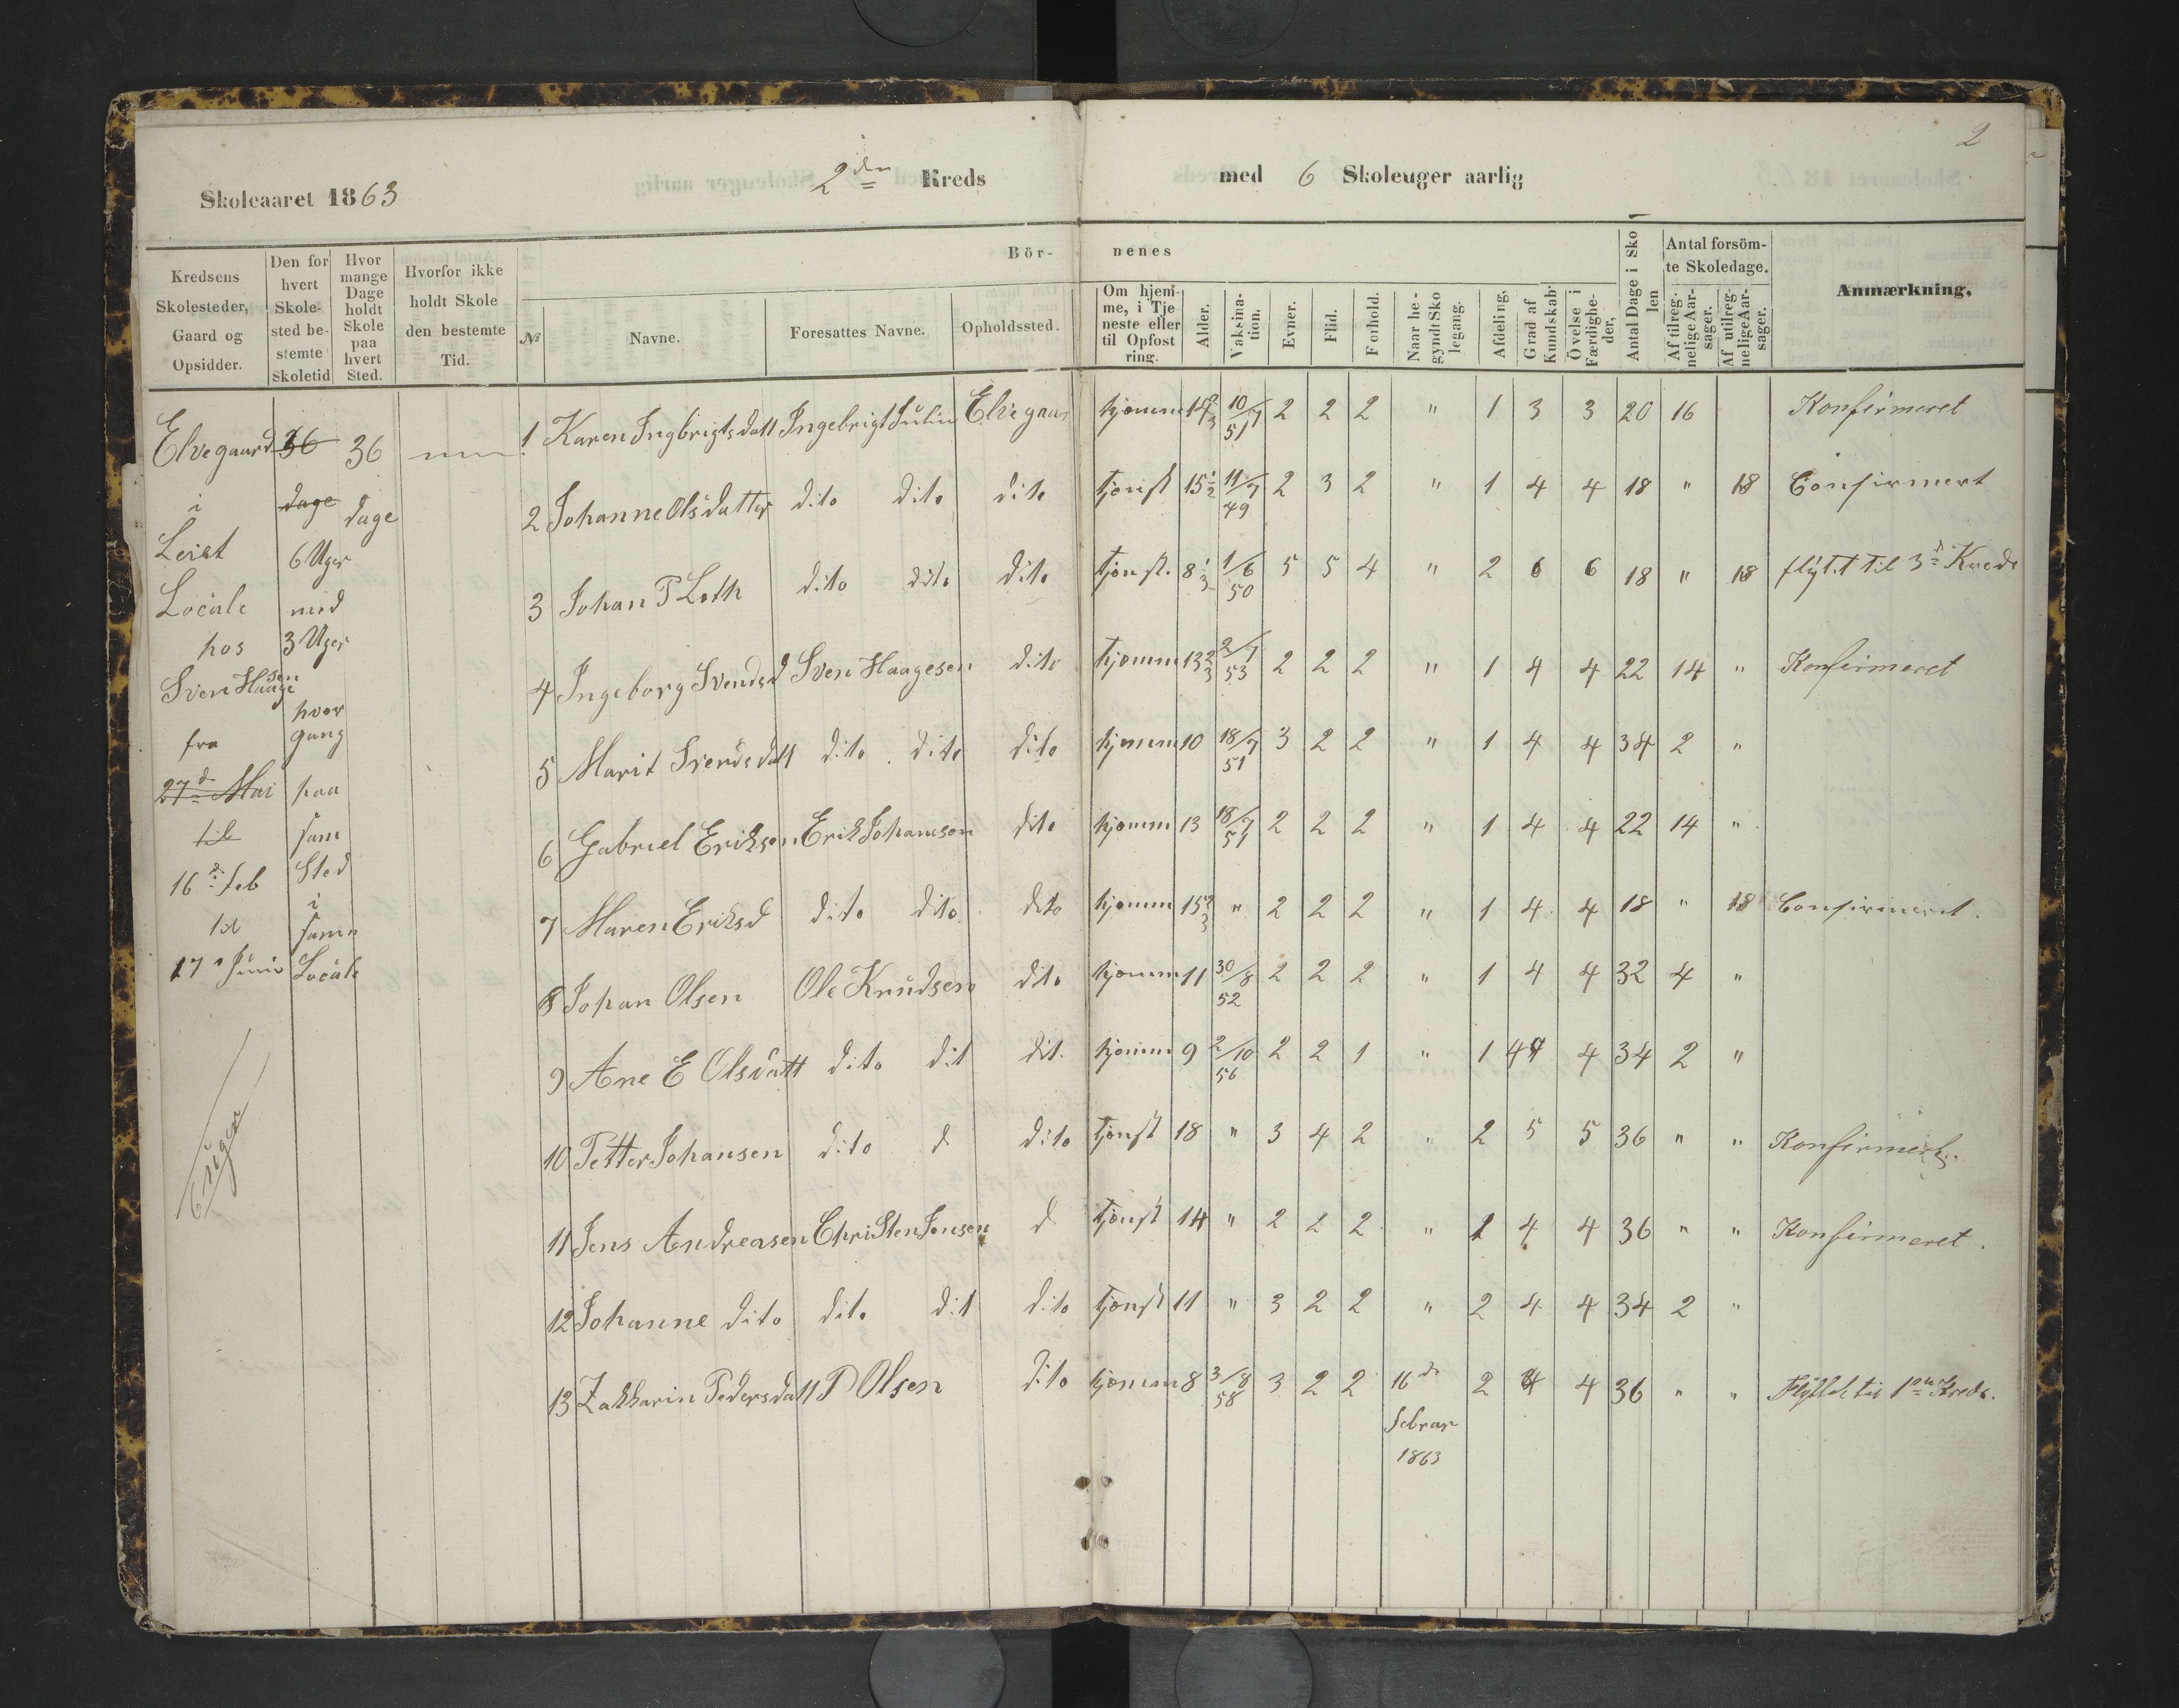 2
Skoleaaret 1863 2den Kreds med 6 Skoleuger aarlig
Kredsens Skolesteder, Gaard og Opsidder.
Den for hvert Skolested bestemte Skoletid
Hvor mange Dage holdt Skole paa hvert Sted.
Hvorfor ikke holdt Skole den bestemte Tid.
Bör- nenes
№
Navne.
Foresattes Navne.
Opholdssted.
Om hjemme, i Tjeneste eller til Opfostring.
Alder.
Vaksination.
Evner.
Flid.
Forhold.
Naar begyndt Skolegang.
Afdeling,
Grad af Kundskab.
Övelse i Færdigheder,
Antal Dage i Skolen
Antal forsömte Skoledage.
Af tilregnelige Aarsager.
Af utilregnelige Aarsager.
Anmærkning,
Elvegaard
i
Leiet
Locale
hos
Sven Haagesen
fra
27d Mai
til
16d feb
til
17 Juni
6 uger
36
dage
6 Uger
med
3 Uger
hver
gang
paa
sam
Sted
i
samm
Locale
36
dage
1 Karen Ingbrigtsdatt Ingebrigt Julin Elvegaar hjemm 14 2/3 10/7 51 2 2 2 " 1 3 3 20 16 Konfirmeret
2 Johanne Olsdatter dito dito dito tjenst 15 1/2 11/7 49 2 3 2 " 1 4 4 18 " 18 Confirmert
3 Johan P Loth dito dito dito tjenst. 8 1/3 1/6 50 5 5 4 " 2 6 6 18 " 18 flyt.t til 3d Kreds
4 Ingeborg Svendsd Sven Haagesen dito hjemm 13 2/3 2/7 53 2 2 2 " 1 4 4 22 14 " Konfirmeret
5 Marit Svendsdatt dito dito dito hjemm 10 18/7 51 3 2 2 " 1 4 4 34 2 "
6 Gabriel Eriksen Erik Johansen dito hjemm 13 18/7 51 2 2 2 " 1 4 4 22 14 "
7 Maren Eriksd dito dito dito hjemm 15 2/3 " 2 2 2 " 1 4 4 18 " 18 Confirmeret.
8 Johan Olsen Ole Knudsen dito hjemm 11 30/8 52 2 2 2 " 1 4 4 32 4 "
9 Ane E Olsdatt dito dit dit. hjemm 9 2/10 56 2 2 1 " 1 4 4 34 2 "
10 Petter Johansen dito d dito tjenst 18 " 3 4 2 " 2 5 5 36 " " Konfirmert.
11 Jens Andreasen Christen Jensen d tjenst 14 " 2 2 2 " 1 4 4 36 " " Konfirmeret.
12 Johanne dito dito dit dito tjenst 11 " 3 2 2 " 2 4 4 34 2 "
13 Zakharin Pedersdatt P Olsen dito hjemm 8 3/8 58 3 2 2 16de februar 1863 2 4 4 36 " " Flyttet til 1ste Kreds.